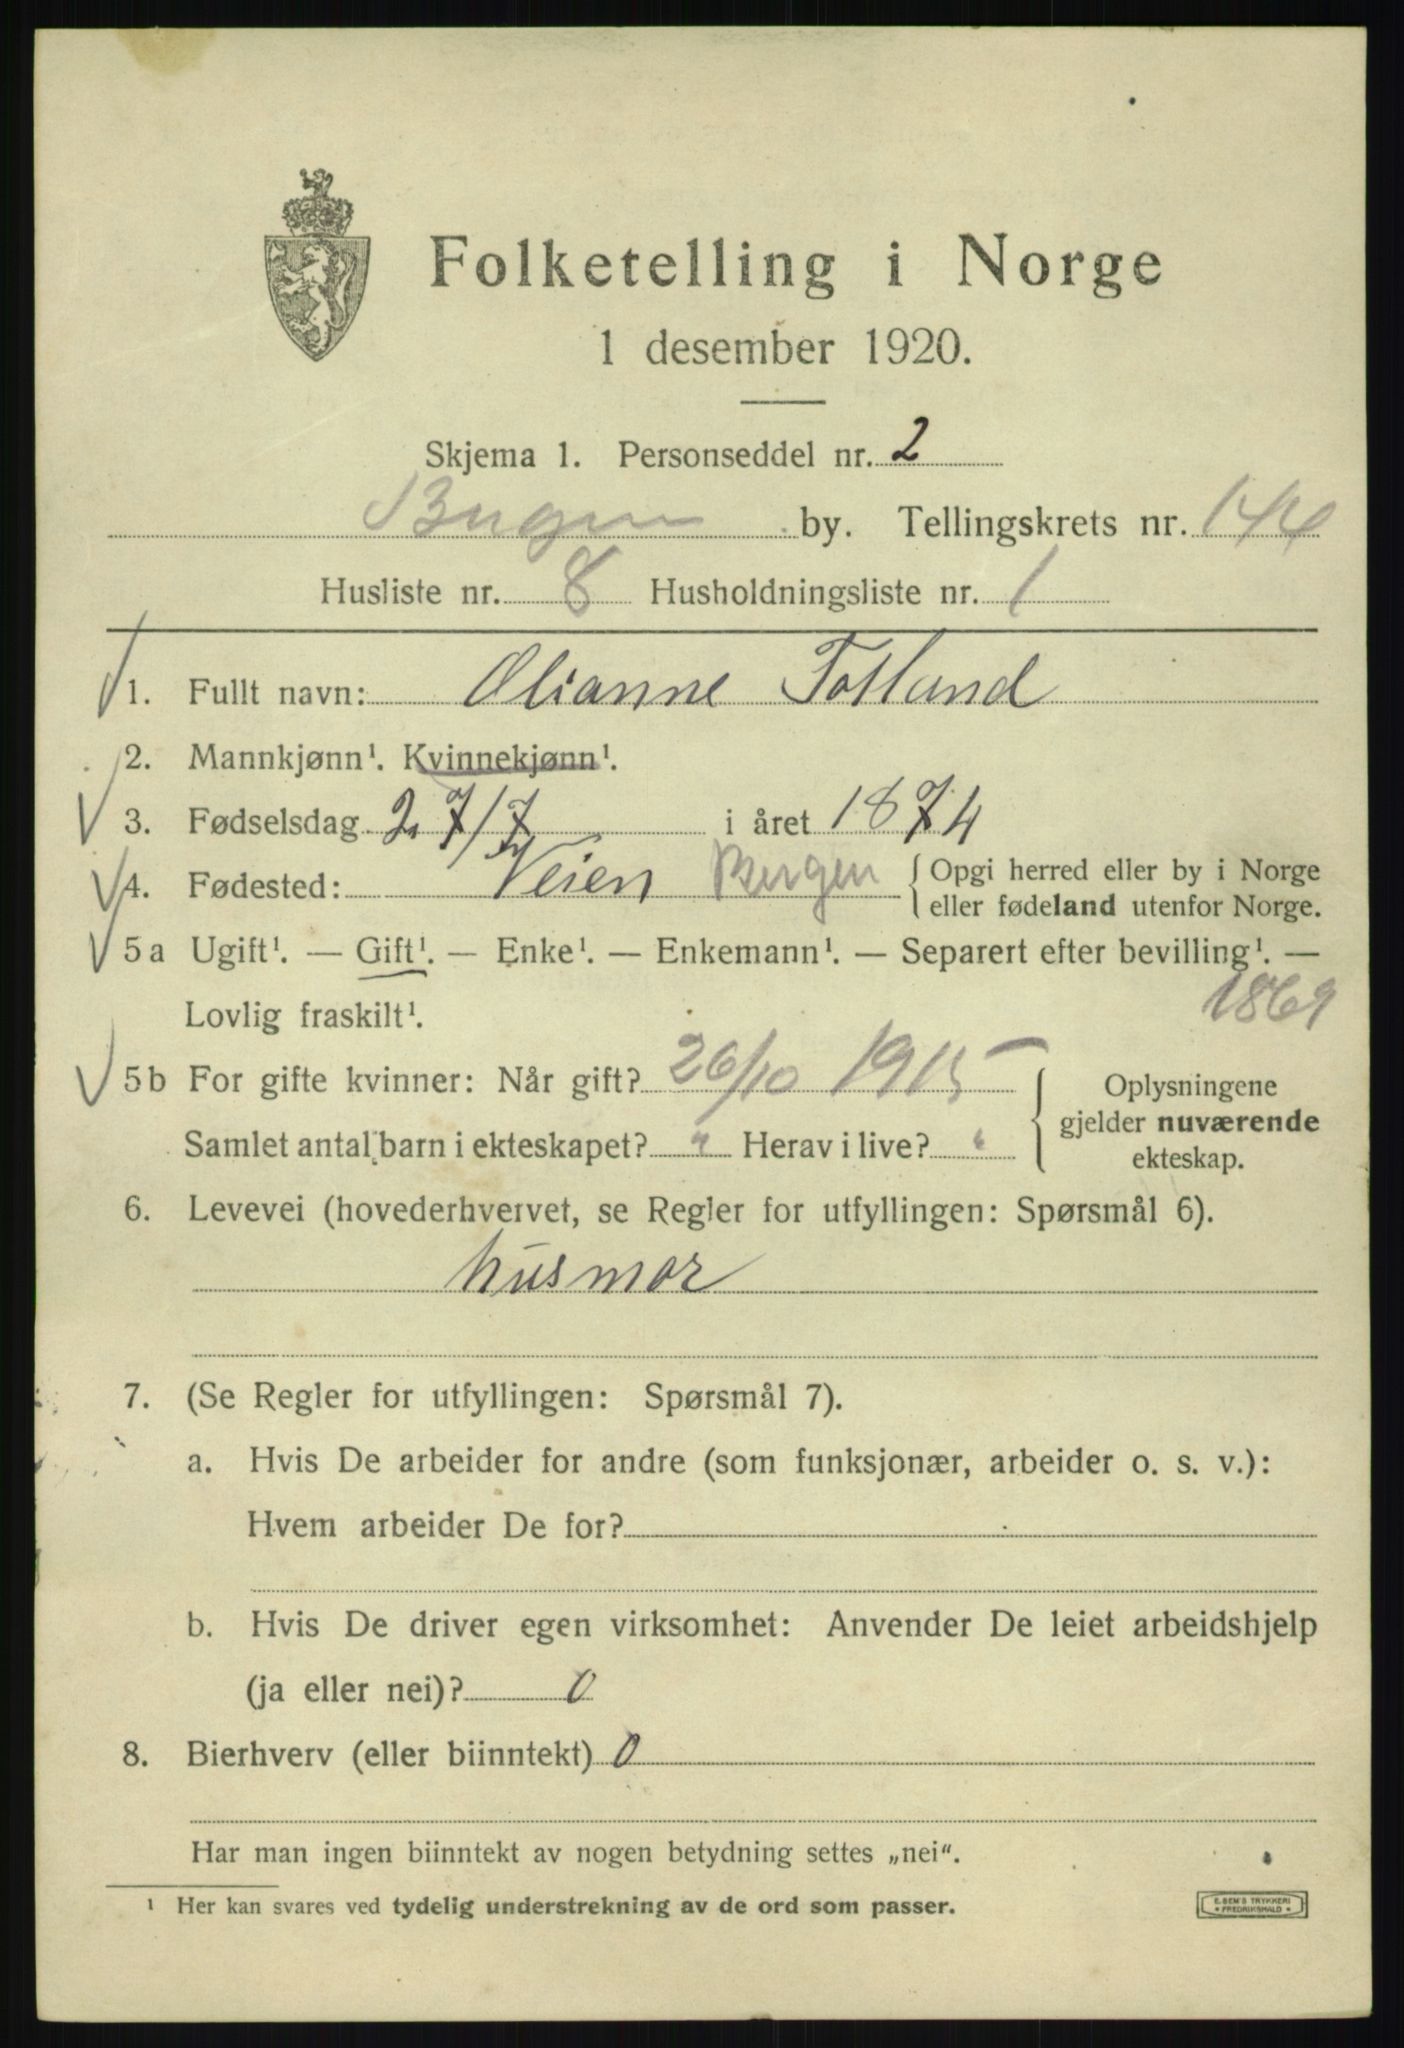 Folketelling i Norge
1 desember 1920.
Skjema 1. Personseddel nr. 2
Bergen by. Tellingskrets nr. 144
Husliste nr. 8 Husholdningsliste nr. 1
1. Fullt navn: Olianne Totland
2. Mannkjønn¹. Kvinnekjønn¹.
3. Fødselsdag 27/7 i året 1874
4. Fødested: Veien Bergen { Opgi herred eller by i Norge
eller fødeland utenfor Norge.
5a Ugift¹. — Gift¹. — Enke¹. — Enkemann¹. — Separert efter bevilling¹. —
Lovlig fraskilt¹. 1869
5b For gifte kvinner: Når gift? 26/10 1915
Samlet antal barn i ekteskapet? " Herav i live? "
Oplysningene
gjelder nuværende
ekteskap.
6. Levevei (hovederhvervet, se Regler for utfyllingen: Spørsmål 6).
husmor
7. (Se Regler for utfyllingen: Spørsmål 7).
a. Hvis De arbeider for andre (som funksjonær, arbeider o. s. v.):
Hvem arbeider De for?
b. Hvis De driver egen virksomhet: Anvender De leiet arbeidshjelp
(ja eller nei)? 0
8. Bierhverv (eller biinntekt) 0
Har man ingen biinntekt av nogen betydning settes „nei“.
¹ Her kan svares ved tydelig understrekning av de ord som passer.
E. SEM'S TRYKKERI
FREDRIKSHALD